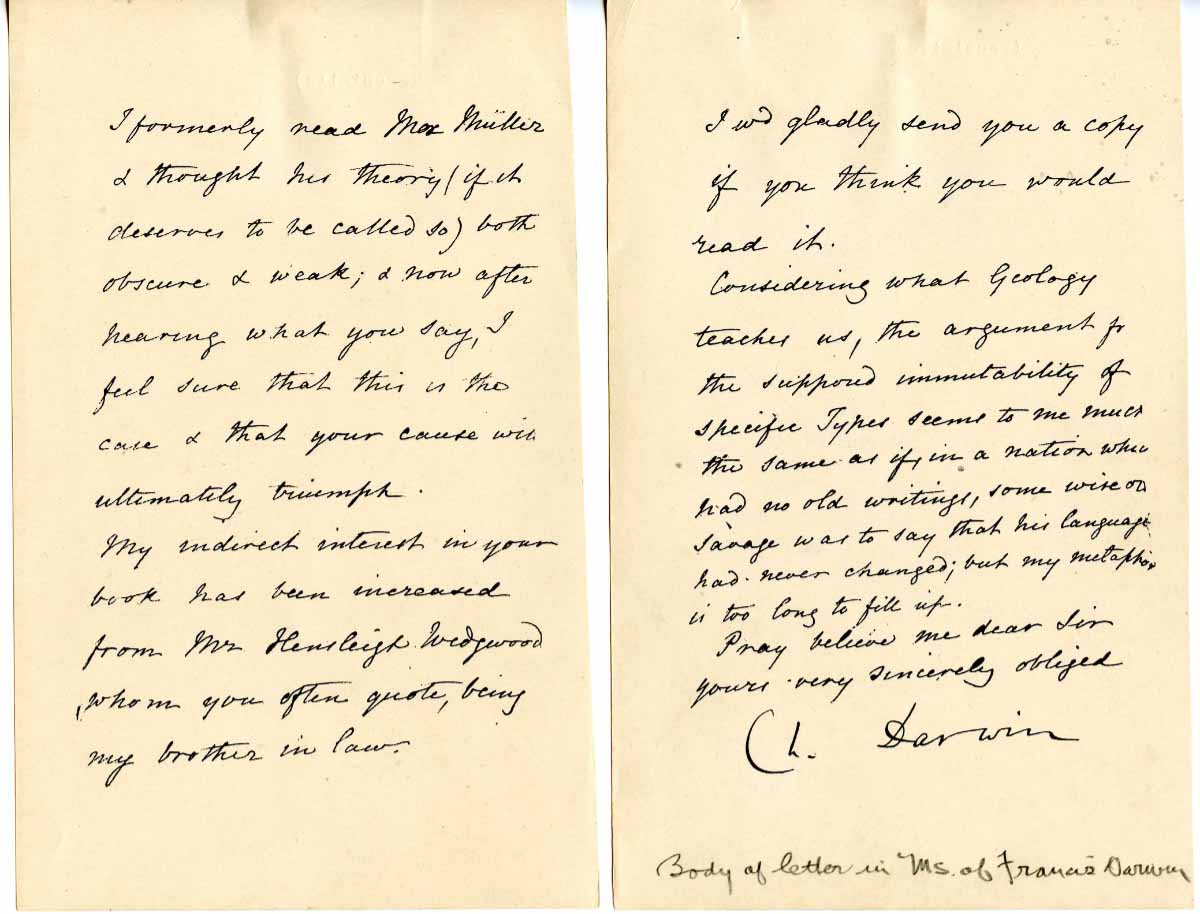 I formerly read Max Müller
& thought his theory (if it
deserves to be called so) both
obscure & weak; & now after
hearing what you say, I
feel sure that this is the
case & that your cause will
ultimately triumph.
My indirect interest in your
book has been increased
from Mr Hensleigh Wedgwood
, whom you often quote, being
my brother in law.
I wd gladly send you a copy
if you think you would
read it.
Considering what Geology
teaches us, the argument fr
the supposed immutability of
specific Types seems to me much
the same as if, in a nation which
had no old writings, some wise old
savage was to say that his language
had never changed; but my metaphor
is too long to fill up.
Pray believe me dear Sir
yours very sincerely obliged
Ch. Darwin
Body of letter in Ms. of Francis Darwin